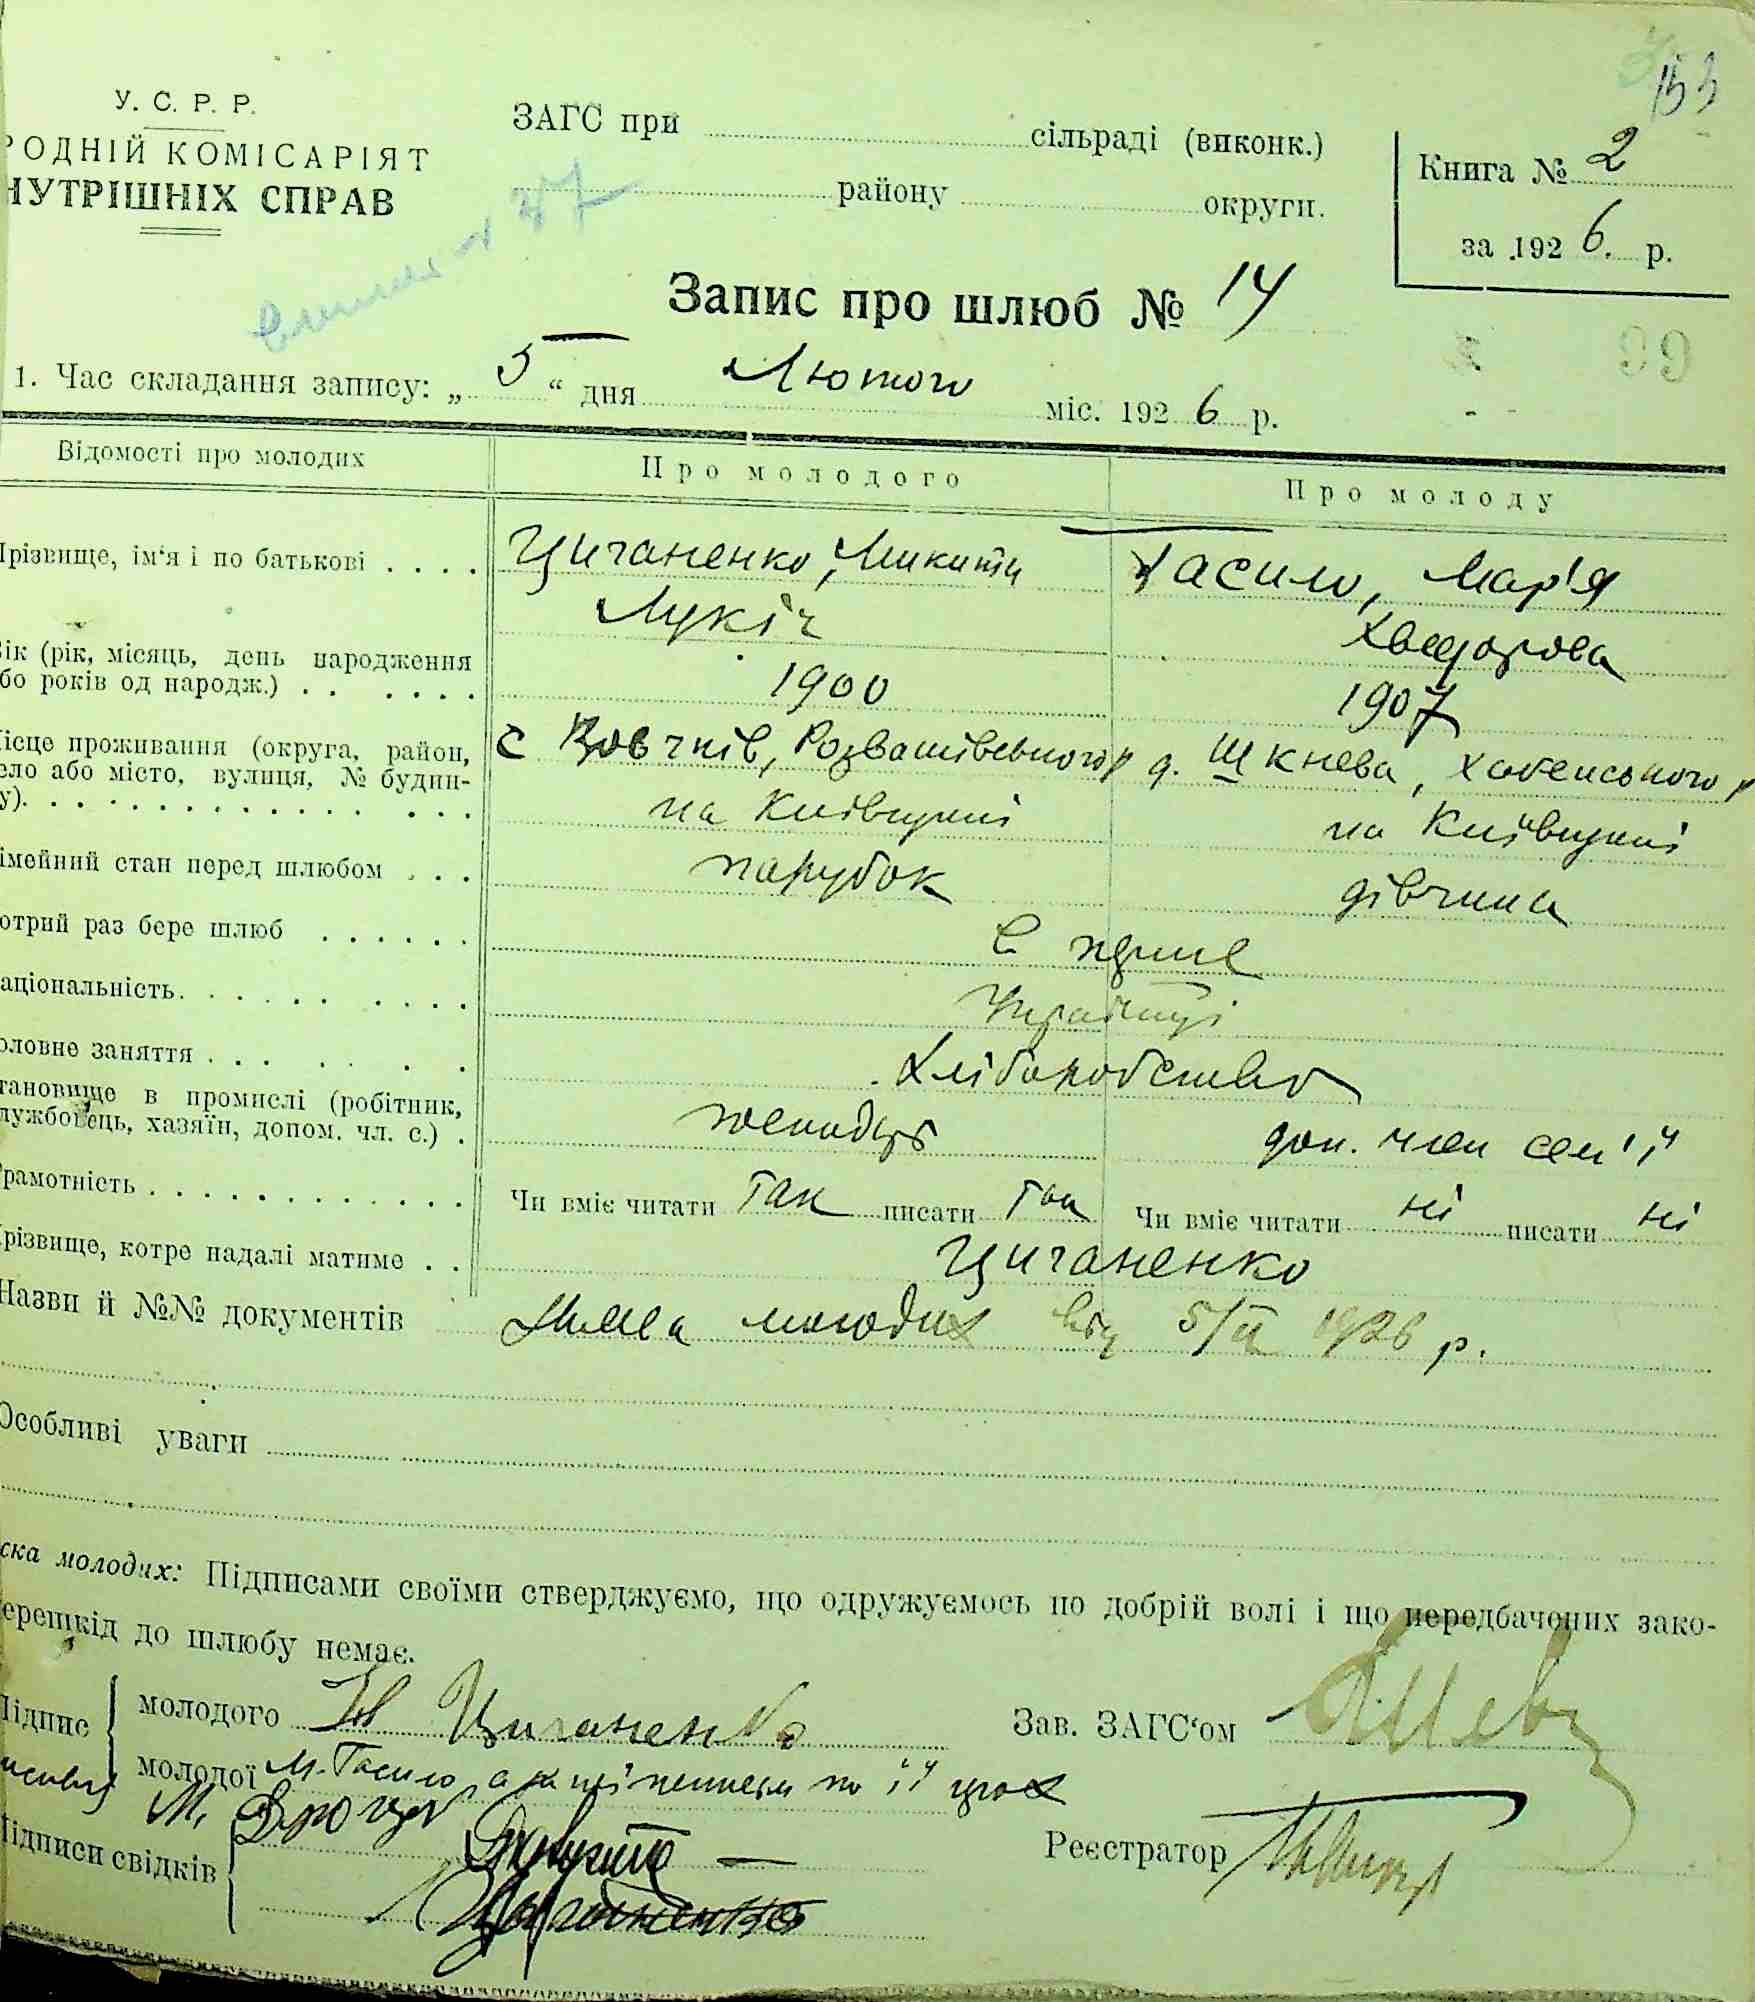 153
У. С. Р. Р.
РОДНІЙ КОМІСАРІЯТ
НУТРІШНІХ СПРАВ
ЗАГС при сільраді (виконк.)
району округи.
Книга № 2
за 192 6. р.
47
Запис про шлюб № 14
1. Час складання запису: „ 5 “ дня Лютого міс. 192 6 р.
Відомості про молодих Про молодого Про молоду
Прізвище, ім‘я і по батькові . . . . Циганенко, Микита Гасило, Мар'я
Лукіч Хведорова
ік (рік, місяць, день народження
бо років од народж.) . . . . . . 1900 1907
ісце проживання (округа, район, с Вовчків, Розважівського р д. Шкнева, Хабенського р
ело або місто, вулиця, № будин-
у). . . . . . . . . . . . . . . на Київщині на Київщині
імейний стан перед шлюбом . . . парубок дівчина
отрий раз бере шлюб . . . . . . В перше
аціональність. . . . . . . . . . Українці
оловне заняття . . . . . . . Хліборобство
тановище в промислі (робітник,
лужбовець, хазяїн, допом. чл. с.) . господар доп. член сем'ї
рамотність . . . . . . . . . . . . Чи вміє читати так писати так Чи вміє читати ні писати ні
різвище, котре надалі матиме . . Циганенко
Назви й №№ документів Заява молодих від 5/II 1926 р.
Особливі уваги
ска молодих: Підписами своїми стверджуємо, що одружуємось по добрій волі і що передбачених зако-
ерешкід до шлюбу немає.
Підпис молодого Циганенко Зав. ЗАГС‘ом
молодої М. Гасило, а за неї по її
М.
Підписи свідків Реєстратор
Циганенко